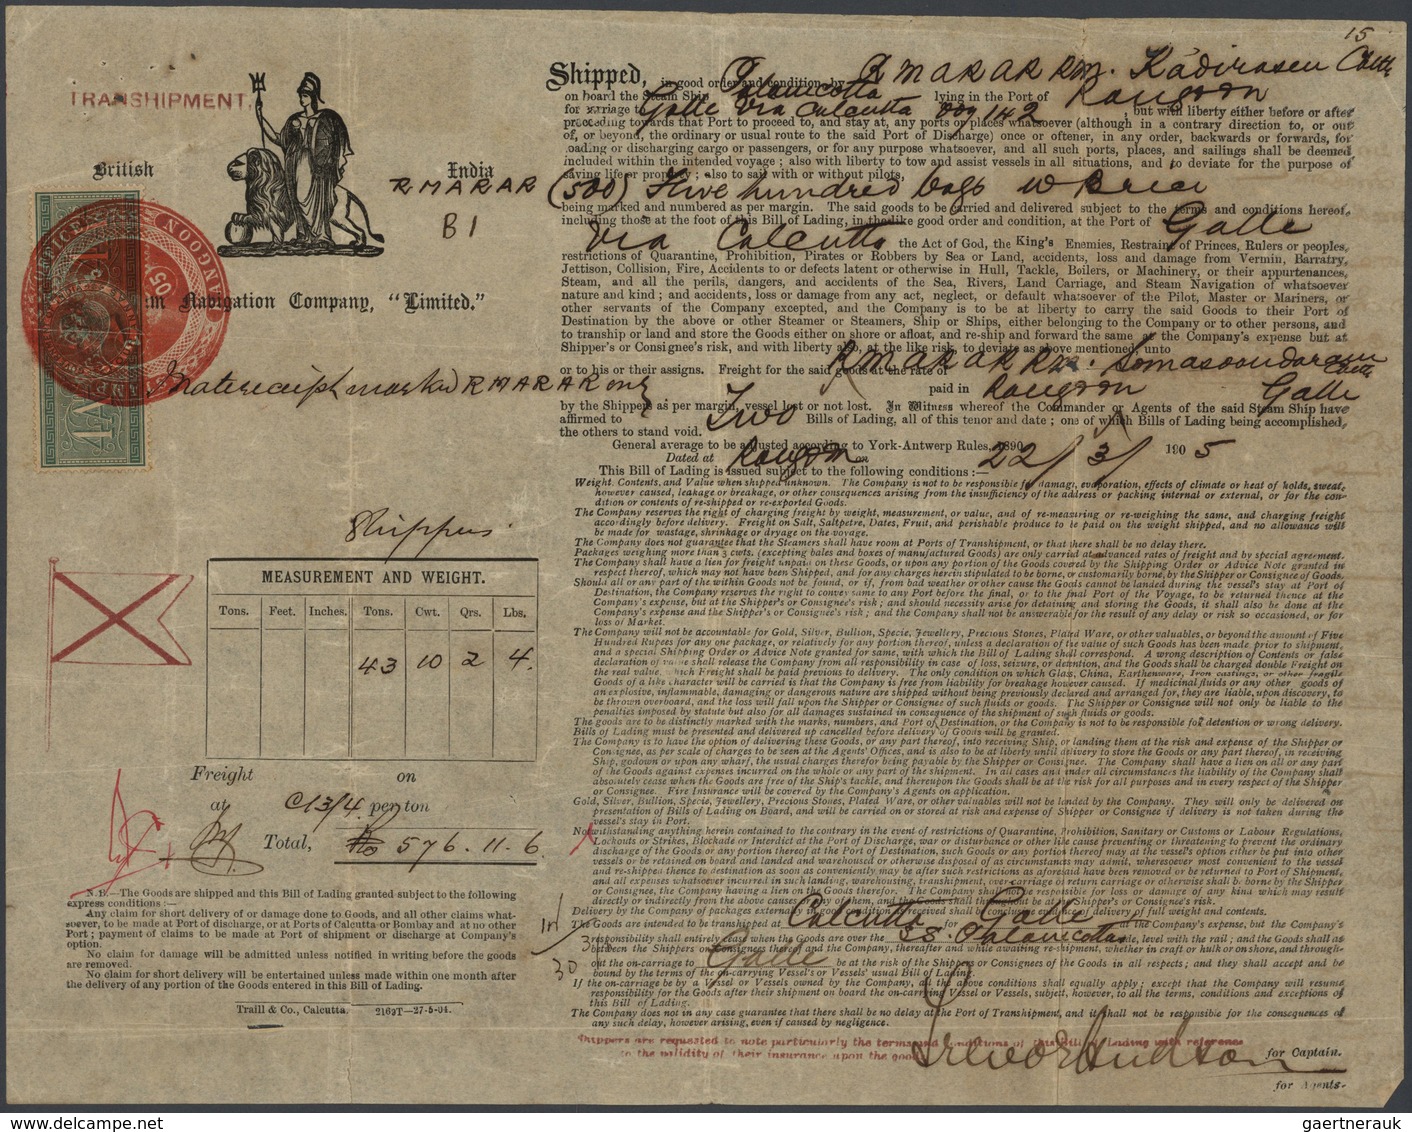 15
TRANSHIPMENT.
British India
Steam Navigation Company, "Limited."
RANGOON
RMARAR
B1
Mate receipt marked RMARAR only
Shippers.
MEASUREMENT AND WEIGHT.
Tons. Feet. Inches. Tons. Cwt. Qrs. Lbs.
43 10 2 4.
Freight on
at C 13/4 per ton
Total, 576.11.6
N.B.—The Goods are shipped and this Bill of Lading granted subject to the following
express conditions:—
Any claim for short delivery of or damage done to Goods, and all other claims what-
soever, to be made at Port of discharge, or at Ports of Calcutta or Bombay and at no other
Port; payment of claims to be made at Port of shipment or discharge at Company's
option.
No claim for damage will be admitted unless notified in writing before the goods
are removed.
No claim for short delivery will be entertained unless made within one month after
the delivery of any portion of the Goods entered in this Bill of Lading.
Traill & Co., Calcutta. 2162T—27-5-04.
Shipped, in good order and condition, by RMARARRm. Kadirasen Chetti
on board the Steam Ship Palamcotta lying in the Port of Rangoon
for carriage to Galle via Calcutta 142, but with liberty either before or after
proceeding towards that Port to proceed to, and stay at, any ports or places whatsoever (although in a contrary direction to, or out
of, or beyond, the ordinary or usual route to the said Port of Discharge) once or oftener, in any order, backwards or forwards, for
loading or discharging cargo or passengers, or for any purpose whatsoever, and all such ports, places, and sailings shall be deemed
included within the intended voyage; also with liberty to tow and assist vessels in all situations, and to deviate for the purpose of
saving life or property; also to sail with or without pilots,
(500) Five hundred bags w Rice
being marked and numbered as per margin. The said goods to be carried and delivered subject to the terms and conditions hereof,
including those at the foot of this Bill of Lading, in the like good order and condition, at the Port of Galle
Via Calcutta the Act of God, the King's Enemies, Restraint of Princes, Rulers or peoples,
restrictions of Quarantine, Prohibition, Pirates or Robbers by Sea or Land, accidents, loss and damage from Vermin, Barratry,
Jettison, Collision, Fire, Accidents to or defects latent or otherwise in Hull, Tackle, Boilers, or Machinery, or their appurtenances,
Steam, and all the perils, dangers, and accidents of the Sea, Rivers, Land Carriage, and Steam Navigation of whatsoever
nature and kind; and accidents, loss or damage from any act, neglect, or default whatsoever of the Pilot, Master or Mariners, or
other servants of the Company excepted, and the Company is to be at liberty to carry the said Goods to their Port of
Destination by the above or other Steamer or Steamers, Ship or Ships, either belonging to the Company or to other persons, and
to tranship or land and store the Goods either on shore or afloat, and re-ship and forward the same at the Company's expense but at
Shipper's or Consignee's risk, and with liberty also, at the like risk, to deviate as above mentioned, unto
RMARARRm. Somasoondarasen Chetti
or to his or their assigns. Freight for the said goods at the rate of
paid in Rangoon Galle
by the Shippers as per margin, vessel lost or not lost. In Witness whereof the Commander or Agents of the said Steam Ship have
affirmed to Two Bills of Lading, all of this tenor and date; one of which Bills of Lading being accomplished,
the others to stand void.
General average to be adjusted according to York-Antwerp Rules, 1890.
Dated at Rangoon on 22/3/1905
This Bill of Lading is issued subject to the following conditions:—
Weight, Contents, and Value when shipped unknown. The Company is not to be responsible for damage, evaporation, effects of climate or heat of holds, sweat,
however caused, leakage or breakage, or other consequences arising from the insufficiency of the address or packing internal or external, or for the con-
dition or contents of re-shipped or re-exported Goods.
The Company reserves the right of charging freight by weight, measurement, or value, and of re-measuring or re-weighing the same, and charging freight
accordingly before delivery. Freight on Salt, Saltpetre, Dates, Fruit, and perishable produce to be paid on the weight shipped, and no allowance will
be made for wastage, shrinkage or dryage on the voyage.
The Company does not guarantee that the Steamers shall have room at Ports of Transhipment, or that there shall be no delay there.
Packages weighing more than 3 cwts. (excepting bales and boxes of manufactured Goods) are only carried at advanced rates of freight and by special agreement.
The Company shall have a lien for freight unpaid on these Goods, or upon any portion of the Goods covered by the Shipping Order or Advice Note granted in
respect thereof, which may not have been Shipped, and for any charges herein stipulated to be borne, or customarily borne, by the Shipper or Consignee of Goods.
Should all or any part of the within Goods not be found, or if, from bad weather or other cause the Goods cannot be landed during the vessel's stay at Port of
Destination, the Company reserves the right to convey same to any Port before the final, or to the final Port of the Voyage, to be returned thence at the
Company's expense, but at the Shipper's or Consignee's risk; and should necessity arise for detaining and storing the Goods, it shall also be done at the
Company's expense and the Shipper's or Consignee's risk; and the Company shall not be answerable for the result of any delay or risk so occasioned, or for
loss of Market.
The Company will not be accountable for Gold, Silver, Bullion, Specie, Jewellery, Precious Stones, Plated Ware, or other valuables, or beyond the amount of Five
Hundred Rupees for any one package, or relatively for any portion thereof, unless a declaration of the value of such Goods has been made prior to shipment,
and a special Shipping Order or Advice Note granted for same, with which the Bill of Lading shall correspond. A wrong description of Contents or false
declaration of value shall release the Company from all responsibility in case of loss, seizure, or detention, and the Goods shall be charged double Freight on
the real value, which Freight shall be paid previous to delivery. The only condition on which Glass, China, Earthenware, Iron castings, or other fragile
Goods of a like character will be carried is that the Company is free from liability for breakage however caused. If medicinal fluids or any other goods of
an explosive, inflammable, damaging or dangerous nature are shipped without being previously declared and arranged for, they are liable, upon discovery, to
be thrown overboard, and the loss will fall upon the Shipper or Consignee of such fluids or goods. The Shipper or Consignee will not only be liable to the
penalties imposed by statute but also for all damages sustained in consequence of the shipment of such fluids or goods.
The goods are to be distinctly marked with the marks, numbers, and Port of Destination, or the Company is not to be responsible for detention or wrong delivery.
Bills of Lading must be presented and delivered up cancelled before delivery of Goods will be granted.
The Company is to have the option of delivering these Goods, or any part thereof, into receiving Ship, or landing them at the risk and expense of the Shipper or
Consignee, as per scale of charges to be seen at the Agents' Offices, and is also to be at liberty until delivery to store the Goods or any part thereof, in receiving
Ship, godown or upon any wharf, the usual charges therefor being payable by the Shipper or Consignee. The Company shall have a lien on all or any part
of the Goods against expenses incurred on the whole or any part of the shipment. In all cases and under all circumstances the liability of the Company shall
absolutely cease when the Goods are free of the Ship's tackle, and thereupon the Goods shall be at the risk for all purposes and in every respect of the Shipper
or Consignee. Fire Insurance will be covered by the Company's Agents on application.
Gold, Silver, Bullion, Specie, Jewellery, Precious Stones, Plated Ware, or other valuables will not be landed by the Company. They will only be delivered on
presentation of Bills of Lading on Board, and will be carried on or stored at risk and expense of Shipper or Consignee if delivery is not taken during the
vessel's stay in Port.
Notwithstanding anything herein contained to the contrary in the event of restrictions of Quarantine, Prohibition, Sanitary or Customs or Labour Regulations,
Lockouts or Strikes, Blockade or Interdict at the Port of Discharge, war or disturbance or other like cause preventing or threatening to prevent the ordinary
discharge of the Goods or any portion thereof at the Port of Destination, such Goods or any portion thereof may at the vessel's option either be put into other
vessels or be retained on board and landed and warehoused or otherwise disposed of as circumstances may admit, wheresoever most convenient to the vessel
and re-shipped thence to destination as soon as conveniently may be after such restrictions as aforesaid have been removed or be returned to Port of Shipment,
and all expenses whatsoever incurred in such landing, warehousing, transhipment, over-carriage or return carriage or otherwise shall be borne by the Shipper
or Consignee, the Company having a lien on the Goods therefor. The Company shall not be responsible for loss or damage of any kind which may result
directly or indirectly from the above causes or any of them, and such goods shall throughout be at Shipper's or Consignee's risk.
Delivery by the Company of packages externally in good condition as received shall be conclusive evidence of delivery of full weight and contents.
The Goods are intended to be transhipped at Calcutta for Galle at the Company's expense, but the Company's
responsibility shall entirely cease when the Goods are over the S.S. Palamcotta side, level with the rail; and the Goods shall as
between the Shippers or Consignees thereof and the Company, thereafter and while awaiting re-shipment, whether in craft or hulk or on shore, and through-
out the on-carriage to Galle be at the risk of the Shippers or Consignees of the Goods in all respects; and they shall accept and be
bound by the terms of the on-carrying Vessel's or Vessels' usual Bill of Lading.
If the on-carriage be by a Vessel or Vessels owned by the Company, all the above conditions shall equally apply; except that the Company will resume
responsibility for the Goods after their shipment on board the on-carrying Vessel or Vessels, subject, however, to all the terms, conditions and exceptions of
this Bill of Lading.
The Company does not in any case guarantee that there shall be no delay at the Port of Transhipment, and it shall not be responsible for the consequences of
any such delay, however arising, even if caused by negligence.
30
Shippers are requested to note particularly the terms and conditions of this Bill of Lading with reference
to the validity of their insurance upon the goods
Trevor Hudson
for Captain.
for Agents.
gaertnerauk © delcampe.net